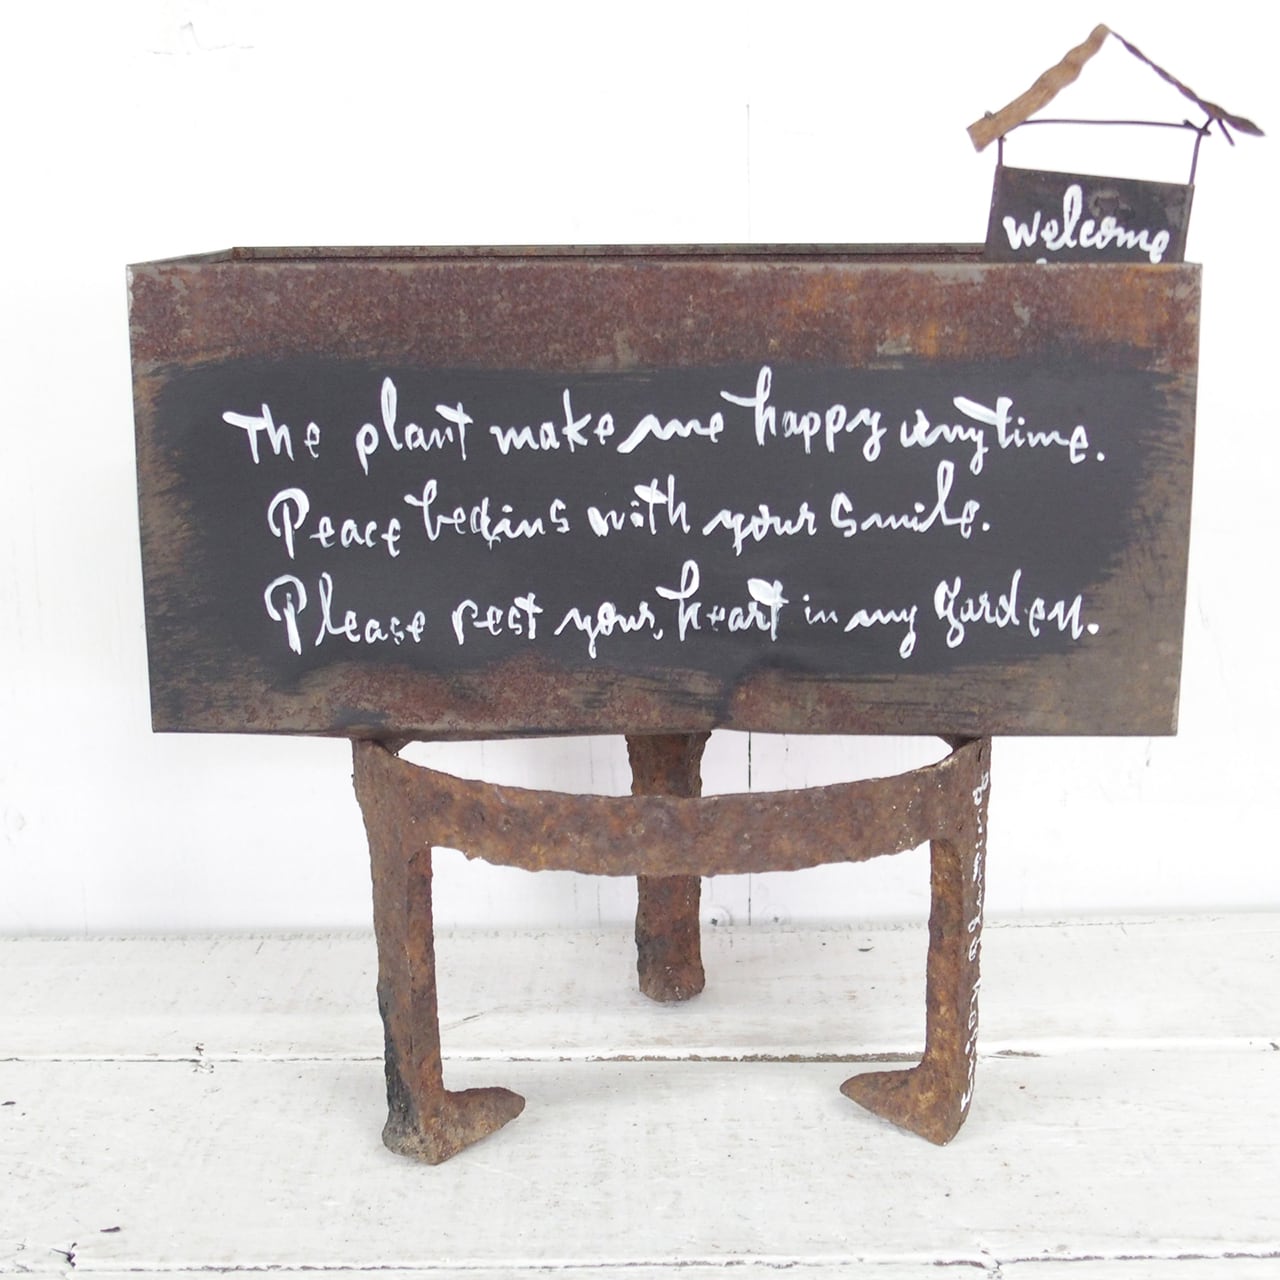 welcome
The plant make me happy anytime.
Peace begins with your smile.
Please rest your heart in my garden.
Enjoy